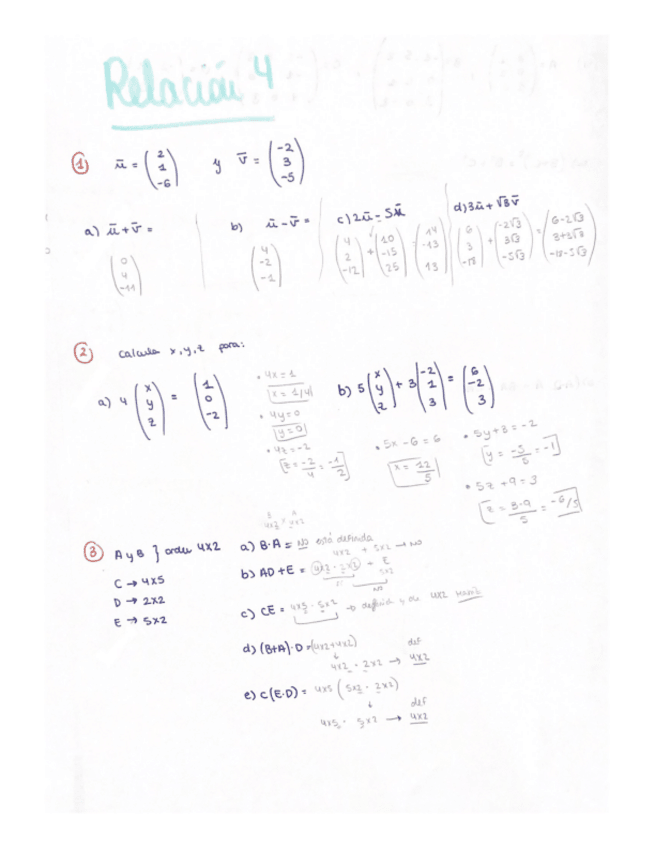 Relación 4
① ū = (2 1 -6) y v̄ = (-2 3 -5)
a) ū + v̄ = (0 4 -11)
b) ū - v̄ = (4 -2 -1)
c) 2ū - 5v̄ (4 2 -12) + (10 -15 25) = (14 -13 13)
d) 3ū + √3 v̄ (6 3 -18) + (-2√3 3√3 -5√3) = (6-2√3 3+3√3 -18-5√3)
② Calcula x, y, z para:
a) 4 (x y z) = (1 0 -2)
• 4x = 1
x = 1/4
• 4y = 0
y = 0
• 4z = -2
z = -2/4 = -1/2
b) 5 (x y z) + 3 (-2 1 3) = (6 -2 3)
• 5x - 6 = 6
x = 12/5
• 5y + 3 = -2
y = -5/5 = -1
• 5z + 9 = 3
z = 3-9/5 = -6/5
③ A y B } orden 4x2
C → 4x5
D → 2x2
E → 5x2
B A
4x2 x 4x2
a) B·A = NO está definida
4x2 + 5x2 → NO
b) AD + E = 4x2 · 2x2 + E
5x2
NO
c) CE = 4x5 · 5x2 → definida y de 4x2
d) (B+A)·D = (4x2+4x2)
4x2 · 2x2 → 4x2
def
e) C(E·D) = 4x5 (5x2 · 2x2)
4x5 · 5x2 → 4x2
def